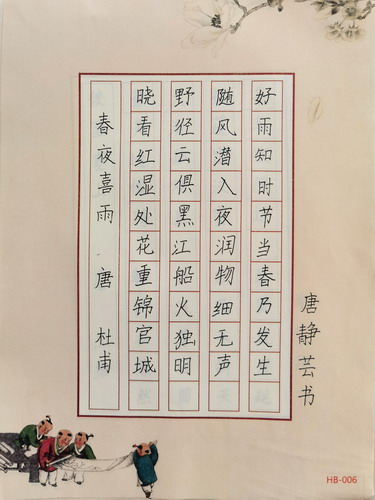 好雨知时节当春乃发生
随风潜入夜润物细无声
野径云俱黑江船火独明
晓看红湿处花重锦官城
春夜喜雨 唐 杜甫
唐静芸书
HB-006